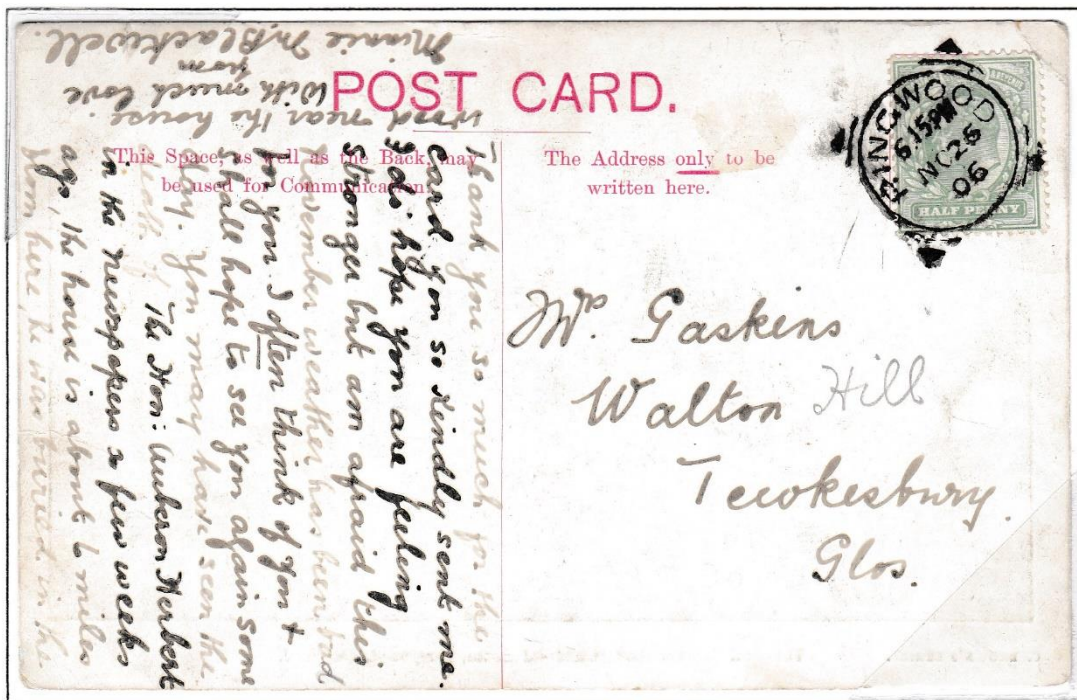 POST CARD.
This Space, as well as the Back, may
be used for Communication.
The Address only to be
written here.
RINGWOOD
6.15PM
NO 26
06
HALF PENNY
Mrs. Gaskins
Walton Hill
Tewkesbury.
Glos.
Thank you so much for the
card you so kindly sent me.
I do hope you are feeling
stronger but am afraid this
November weather has been bad
for you. I often think of you &
shall hope to see you again some
day. You may have seen the
death of The Hon: Auberon Herbert
in the newspapers a few weeks
ago, the house is about 2 miles
from here, he was buried in the
wood near the house.
With much love
from
Minnie M. Blackwell.